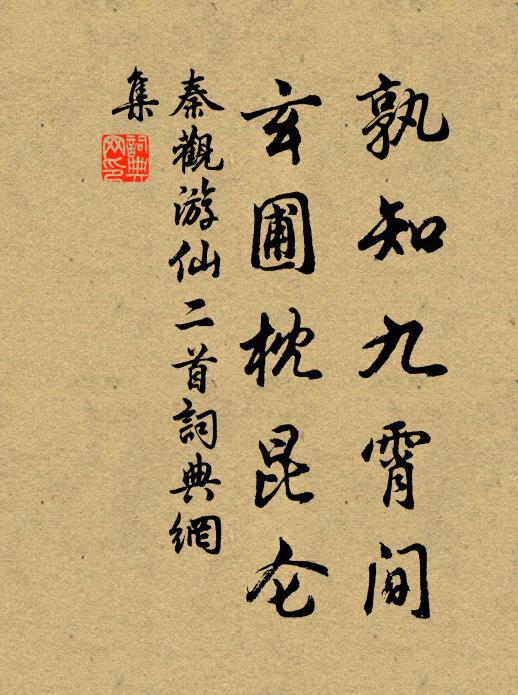 孰知九霄间
玄圃枕昆仑
秦觀游仙二首詞典網
集
詞典
网印